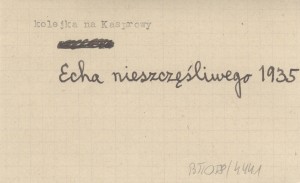 kolejka na Kasprowy
Echa nieszczęśliwego 1935